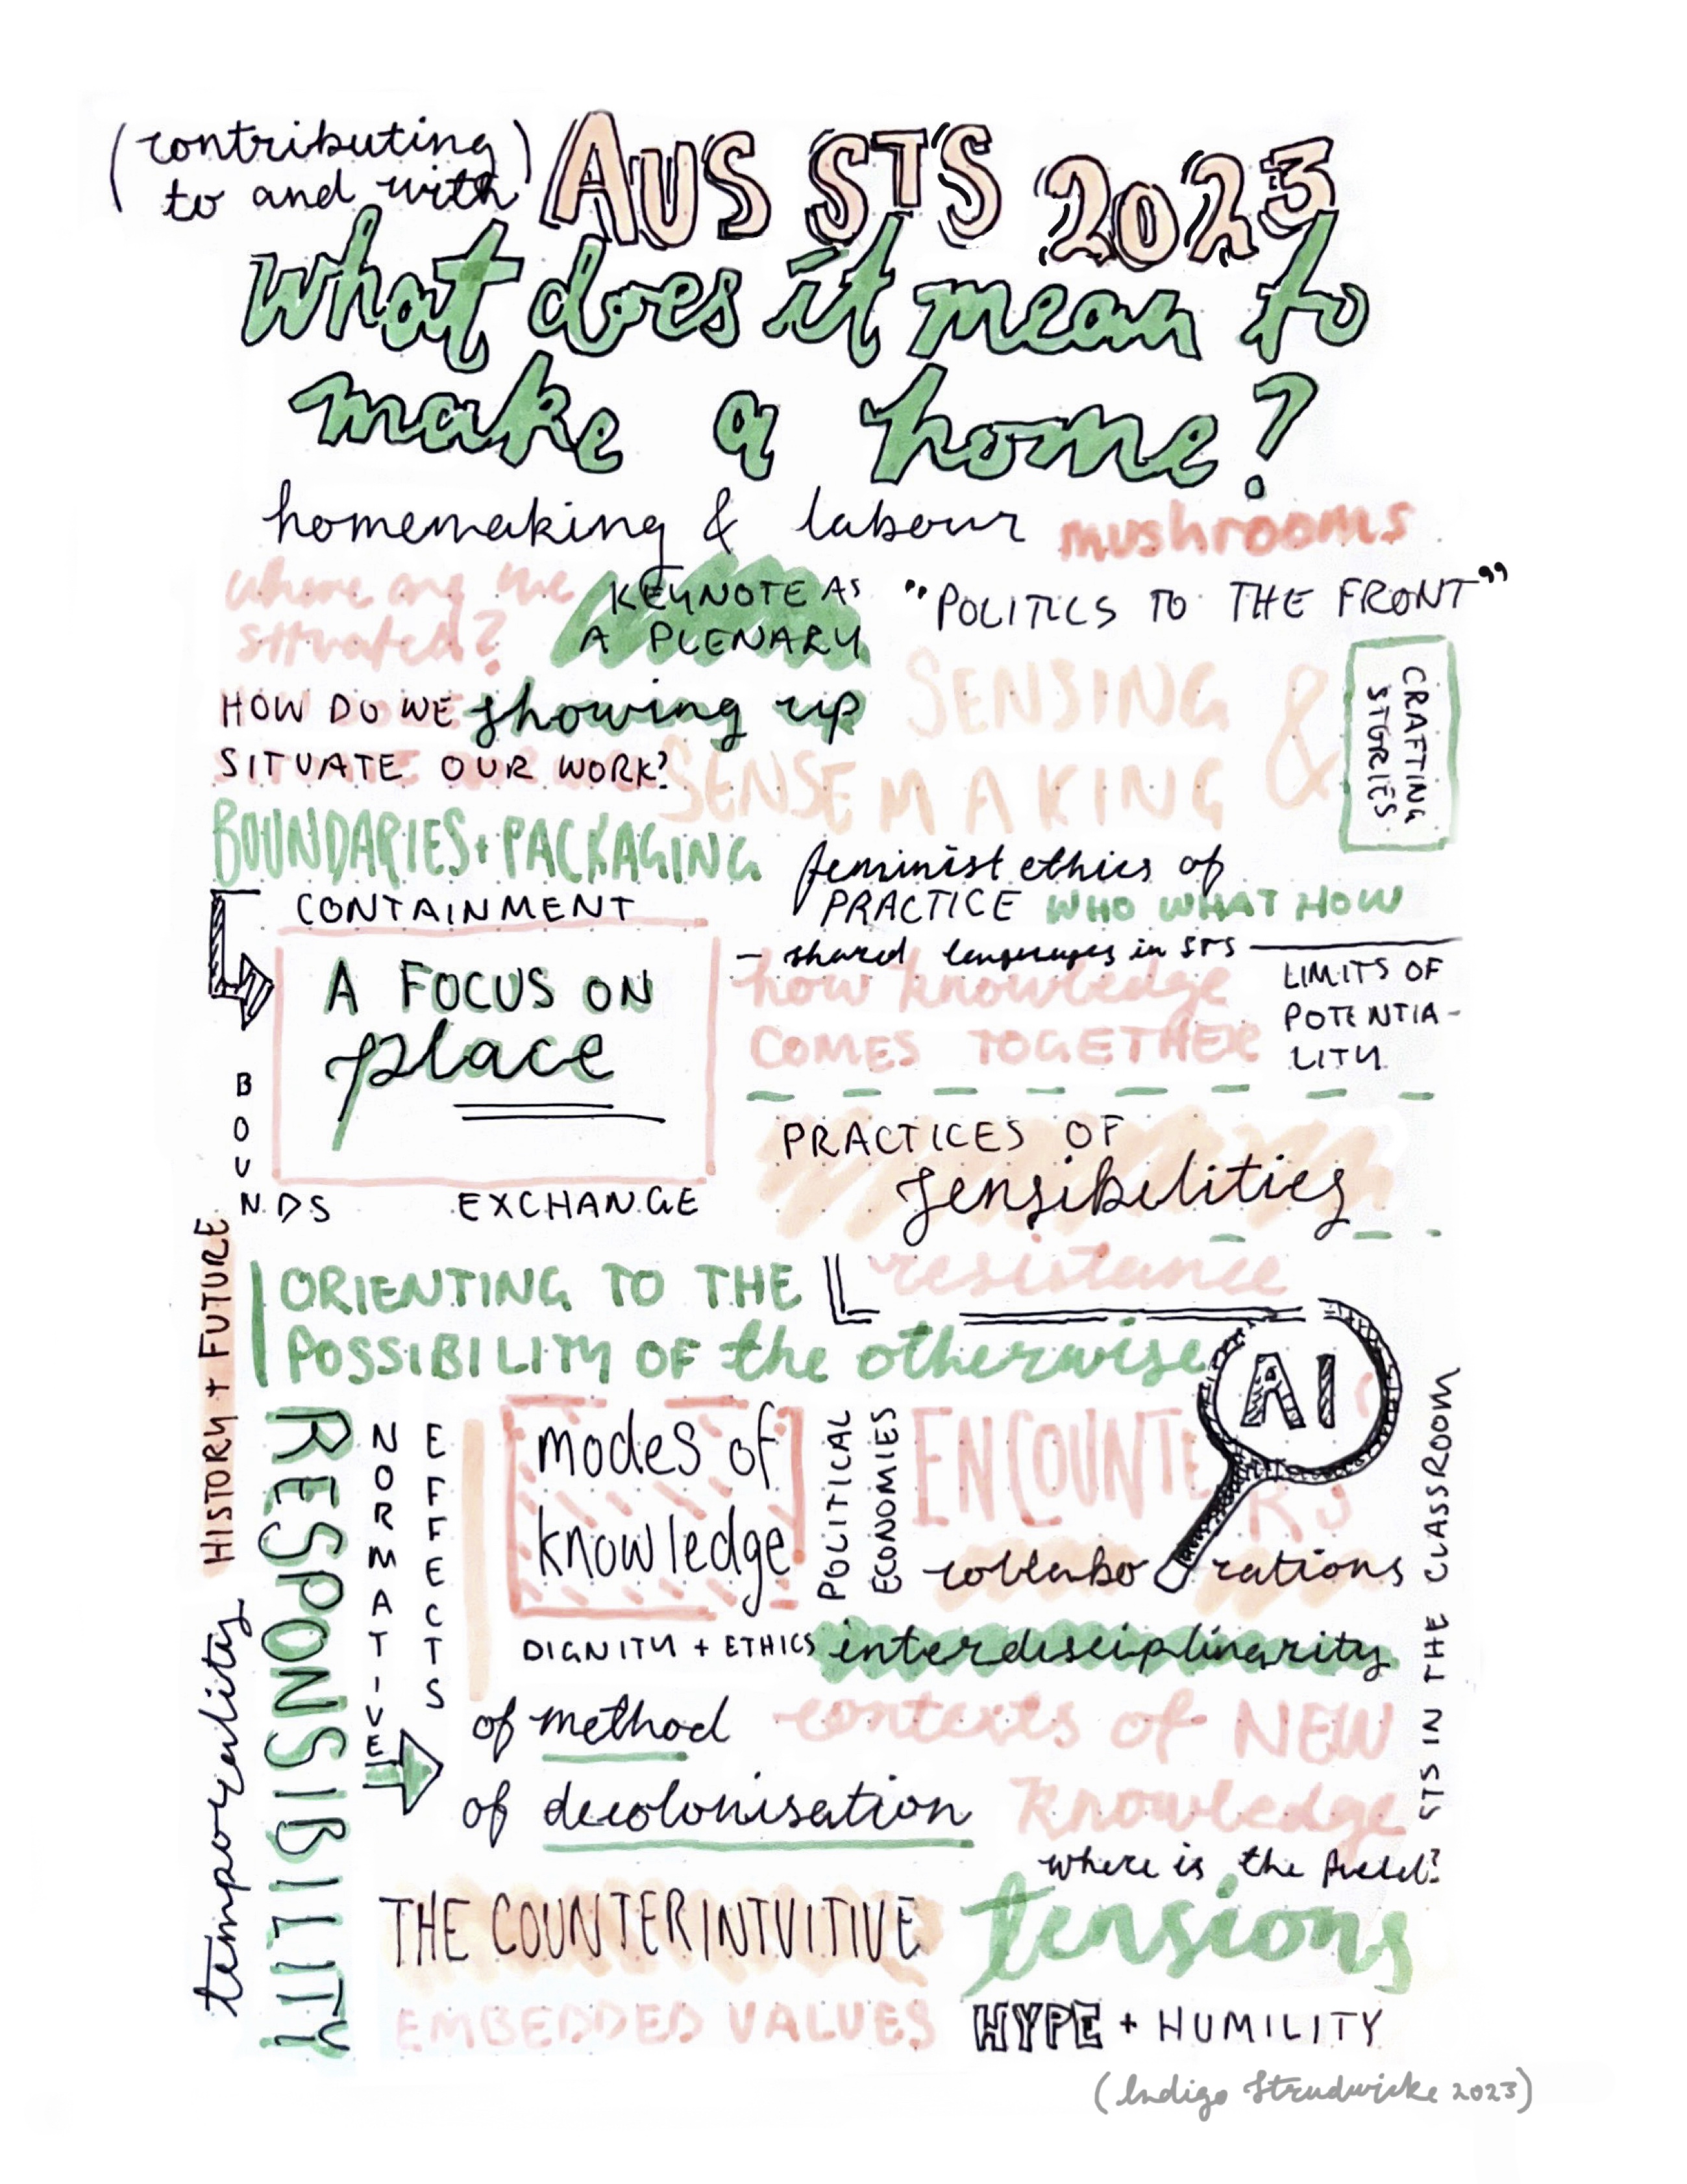 (contributing
to and with)
AUS STS 2023
what does it mean to
make a home?
homemaking & labour
mushrooms
where are we
situated?
KEYNOTE AS
A PLENARY
"POLITICS TO THE FRONT"
HOW DO WE
SITUATE OUR WORK?
showing up
SENSING &
SENSE MAKING
CRAFTING
STORIES
BOUNDARIES + PACKAGING
feminist ethics of
PRACTICE
WHO WHAT HOW
CONTAINMENT
- shared languages in STS
A FOCUS ON
place
how knowledge
COMES TOGETHER
LIMITS OF
POTENTIA-
LITY
BOUNDS
EXCHANGE
PRACTICES OF
sensibilities
resistance
HISTORY + FUTURE
ORIENTING TO THE
POSSIBILITY OF the otherwise
AI
RESPONSIBILITY
NORMATIVE
EFFECTS
modes of
knowledge
POLITICAL
ECONOMIES
ENCOUNTERS
collaborations
STS IN THE CLASSROOM
DIGNITY + ETHICS
interdisciplinarity
temporality
of method
of decolonisation
contexts of NEW
Knowledge
where is the field?
THE COUNTERINTUITIVE
tensions
EMBEDDED VALUES
HYPE + HUMILITY
(Indigo Strudwicke 2023)